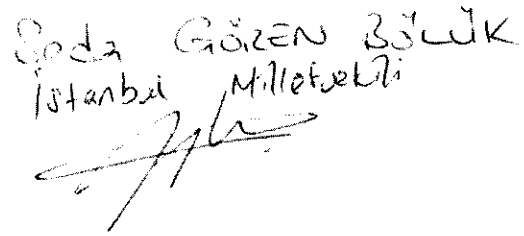 Seda GÖREN BÖLÜK
İstanbul Milletvekili